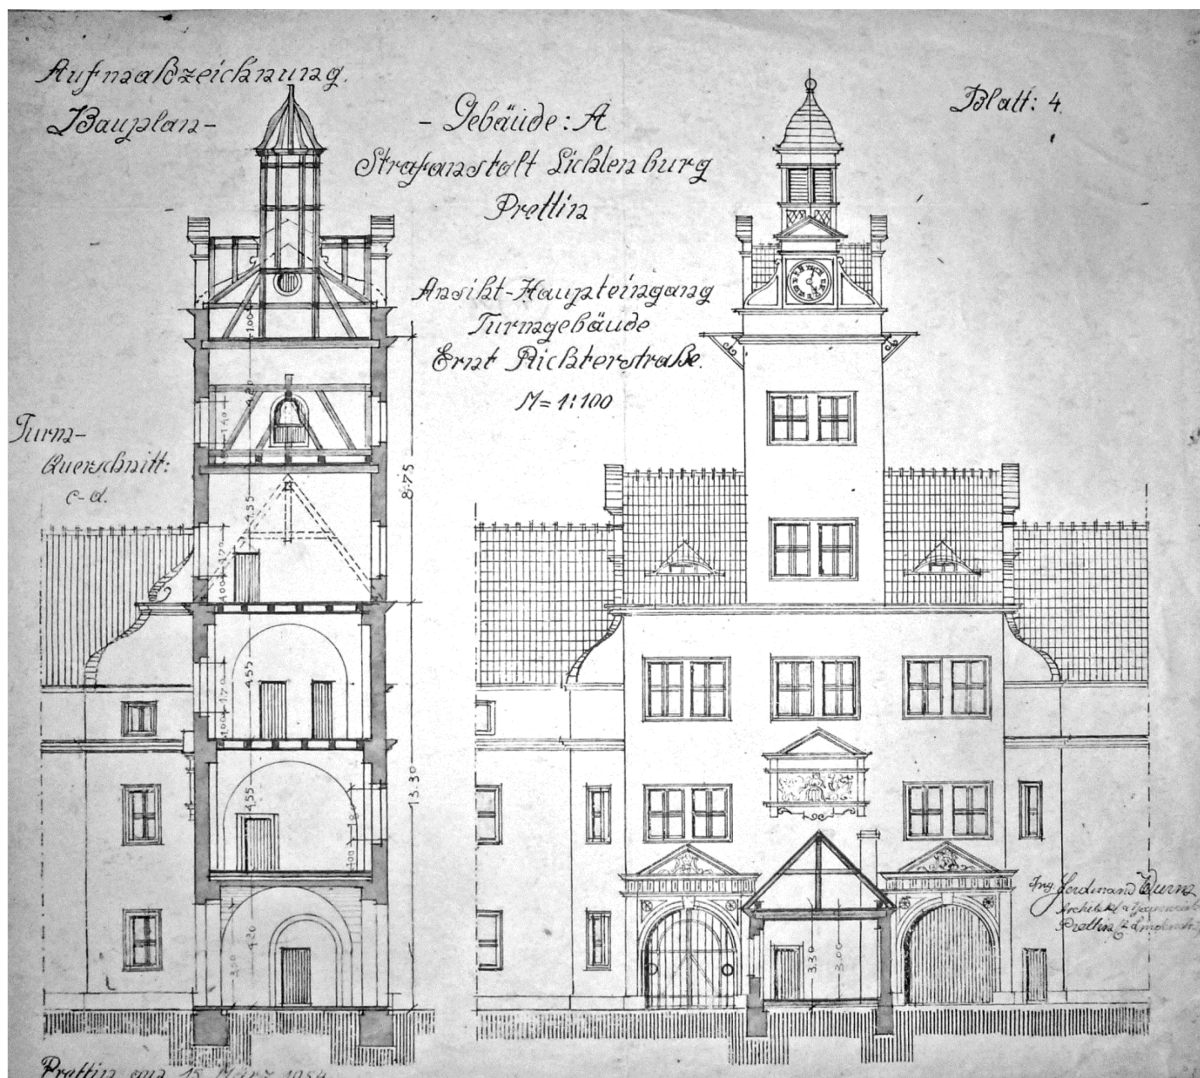 Aufmaßzeichnung.
Bauplan-
- Gebäude: A
Strafanstalt Lichtenburg
Prettin
Blatt: 4.
Ansiht-Haupteingang
Turmgebäude
Ernt Richterstraße.
M= 1:100
Turm-
Querschnitt:
c-d.
1.00
4.20
1.40
8.75
4.55
1.70
1.00
4.55
1.70
1.00
13.30
4.55
1.80
1.00
4.20
3.50
3.30
3.00
Ing Ferdinand Wurm
Architekt
Prettin
Prettin am 15. März 1954